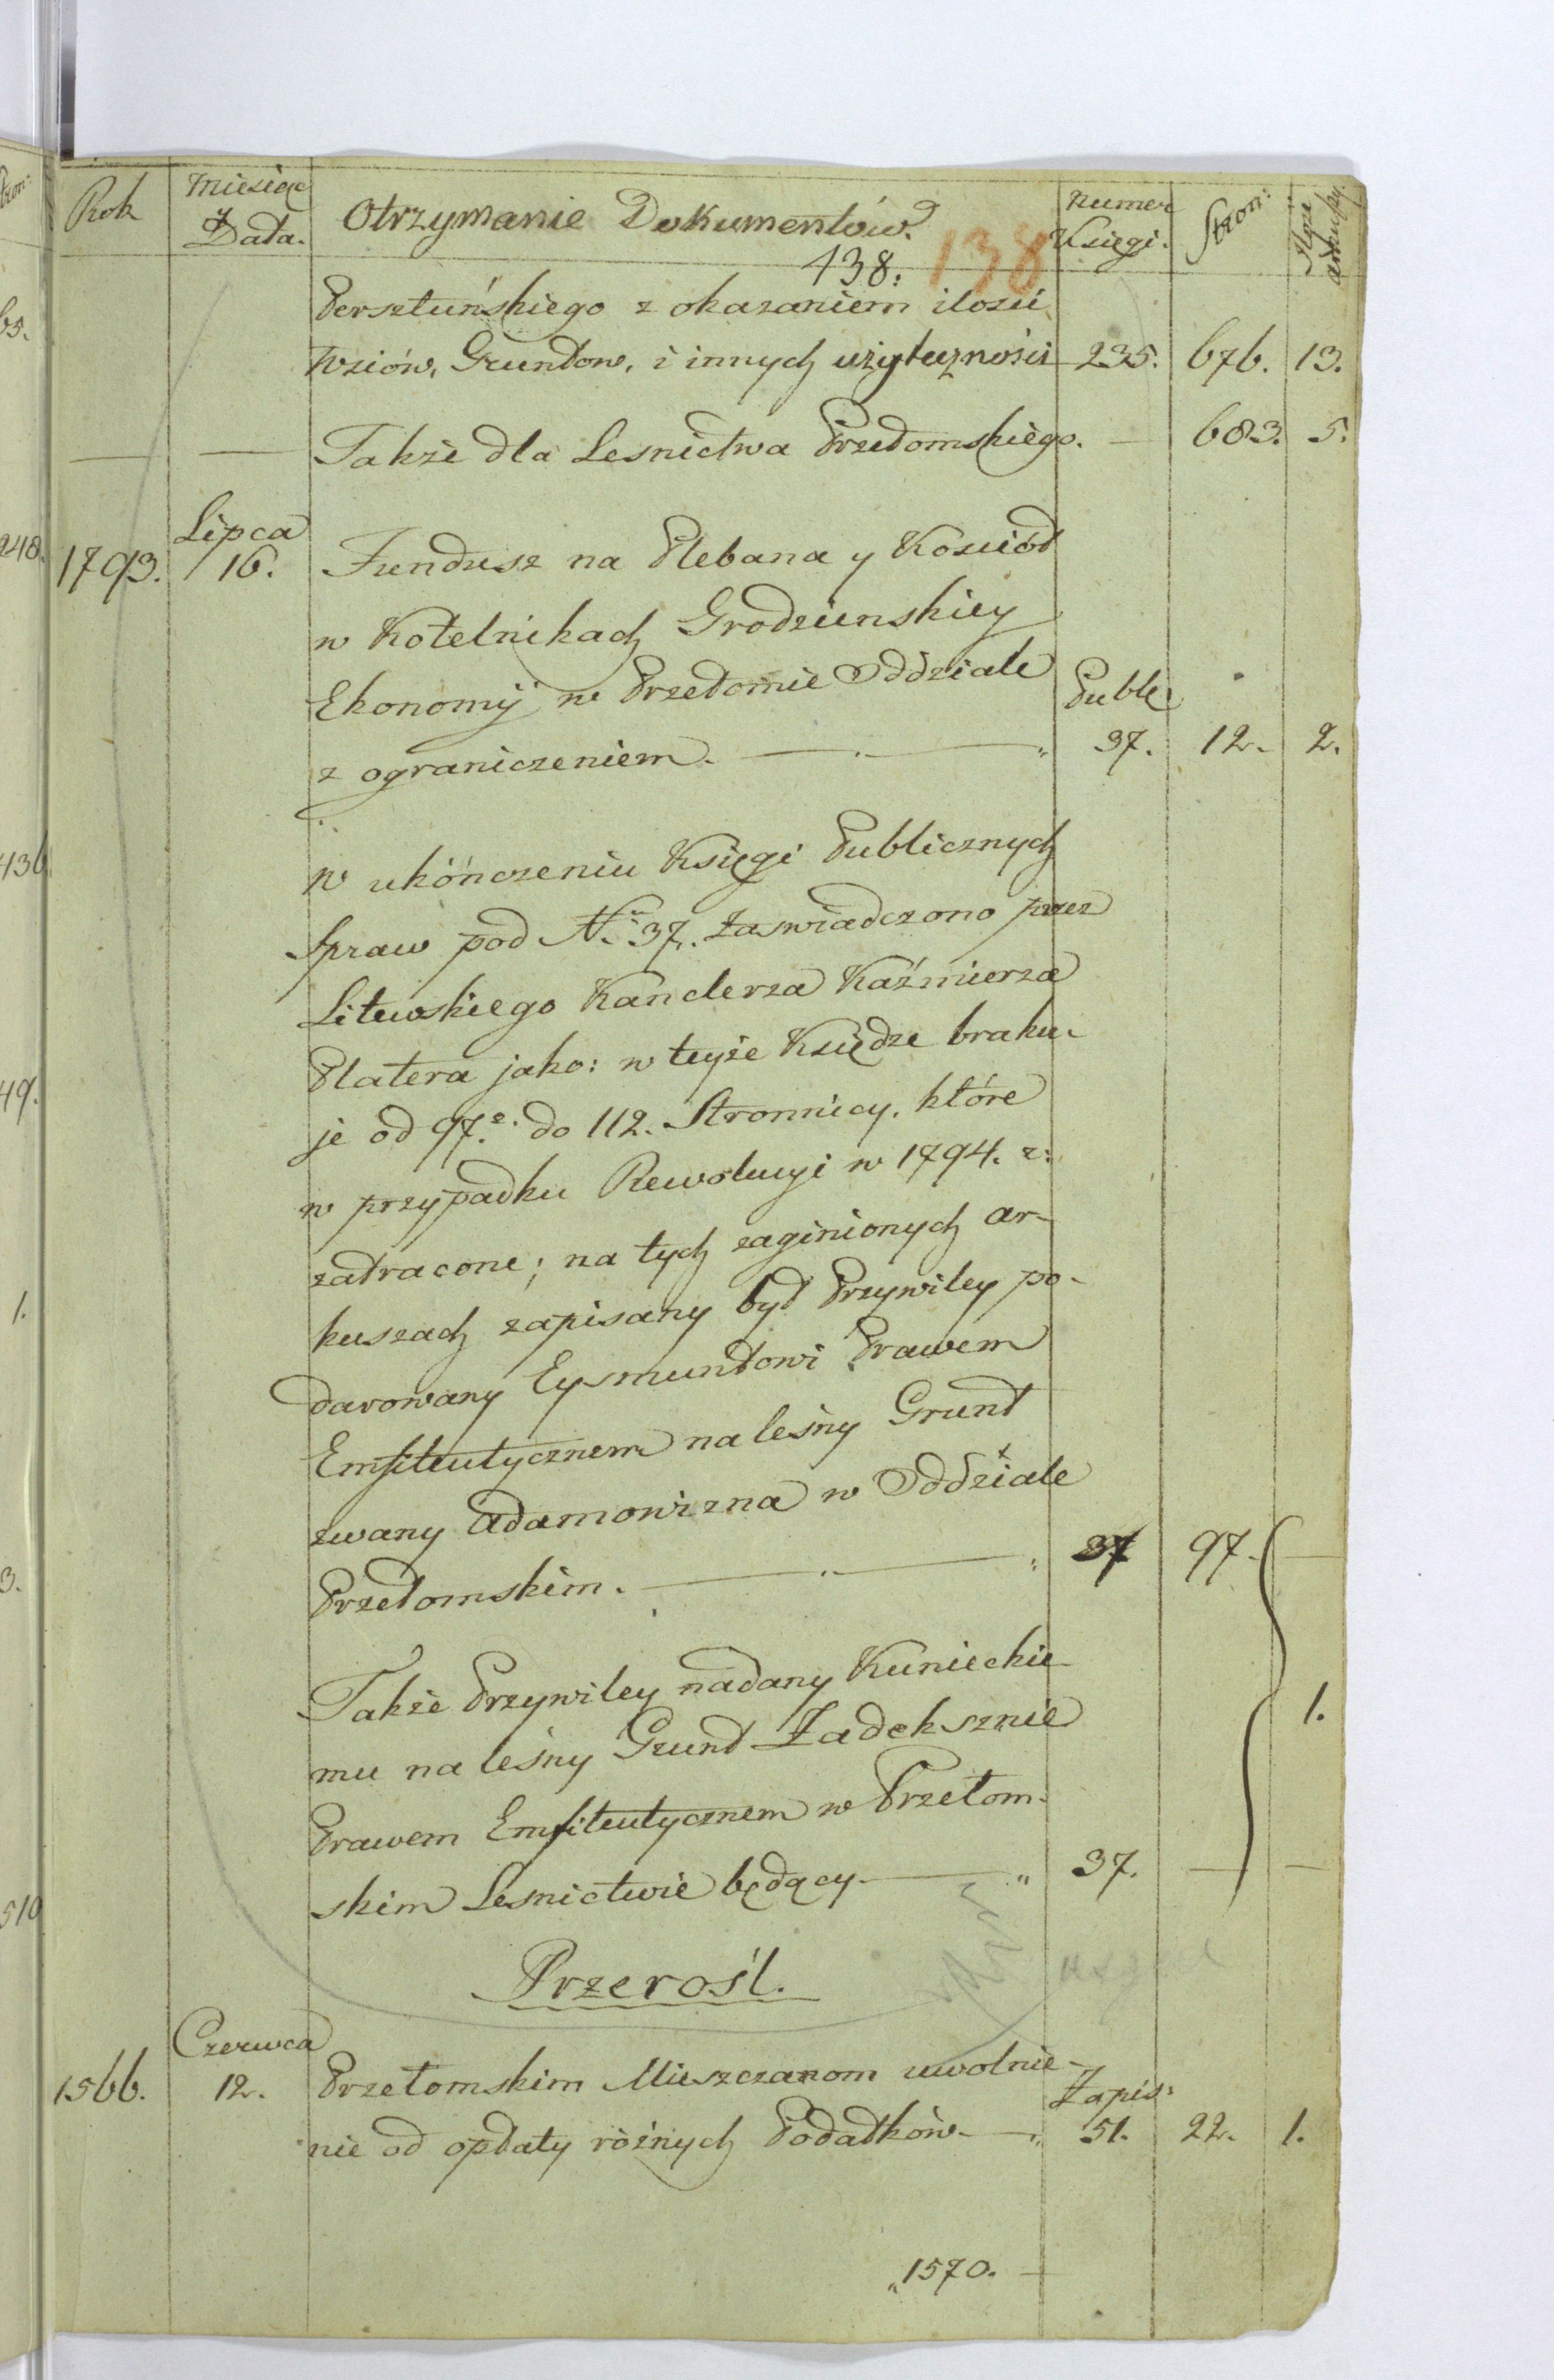 Rok Miesiąc y Data. Otrzymanie Dokumentów. Numer Księgi. Stron: arkuszy.
138. 138
Persztuńskiego z okazaniem ilosci
Wsiów, Gruntow, i innych użyteczności 235. 676. 13.
— — Także dla Lesnictwa Przełomskiego. — 683. 5.
Lipca
1793. 16. Fundusz na Plebana y Kościół
w Kotelnikach Grodzienskiey
Ekonomij w Przełomie Oddziale Publ:
z ograniczeniem. — 37. 12. 2.
W ukończeniu Księgi Publicznych
Spraw pod N. 37. Zaswiadczono przez
Litewskiego Kanclerza Kaźmierza
Platera jako: w teyże Księdze braku-
je od 97. do 112. Stronnicy, które
w przypadku Rewolucyi w 1794. r:
zatracone; na tych zaginionych ar-
kuszach zapisany był Przywiley po-
darowany Eysmuntowi Prawem
Emfiteutycznem na leśny Grunt
zwany Adamowizna w Oddziale
Przełomskim. — 37 97. —
Także Przywiley nadany Kunieckie-
mu na leśny Grunt Zadeksznie 1.
Prawem Emfiteutycznem w Przełom-
skim Lesnictwie będący — 37. — —
Przerośl.
Czerwca
1566. 12. Przełomskim Mieszczanom uwolnie- Zapis:
nie od opłaty różnych Podatków — 51. 22. 1.
1570. —
bs.
248.
436
49.
1.
3.
510